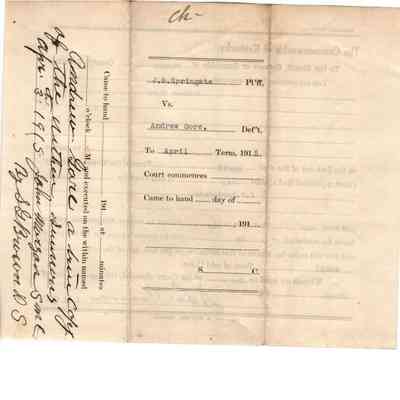 ch-
J.B.Springate Pl'ff.
Vs.
Andrew Gore, Def't.
To April Term, 1915.
Court commences
Came to hand day of
, 191
S. C.
Came to hand 191 at minutes
o'clock M. and executed on the within named
Andrew Gore a true copy
of the within summons
Apr. 2 1915 John Morgan S M C
By S D Brown D S